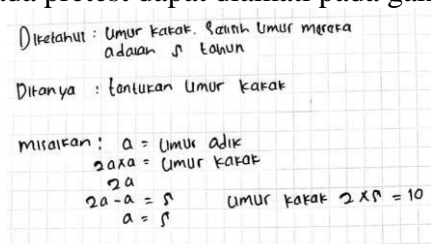 ada pretest dapat diamati pada gam
Diketahui : Umur kakak. Selisih Umur mereka
adalah 5 tahun
Ditanya : tentukan Umur kakak
misalkan : a = Umur adik
2axa = Umur kakak
2a
2a - a = 5 Umur kakak 2 x 5 = 10
a = 5